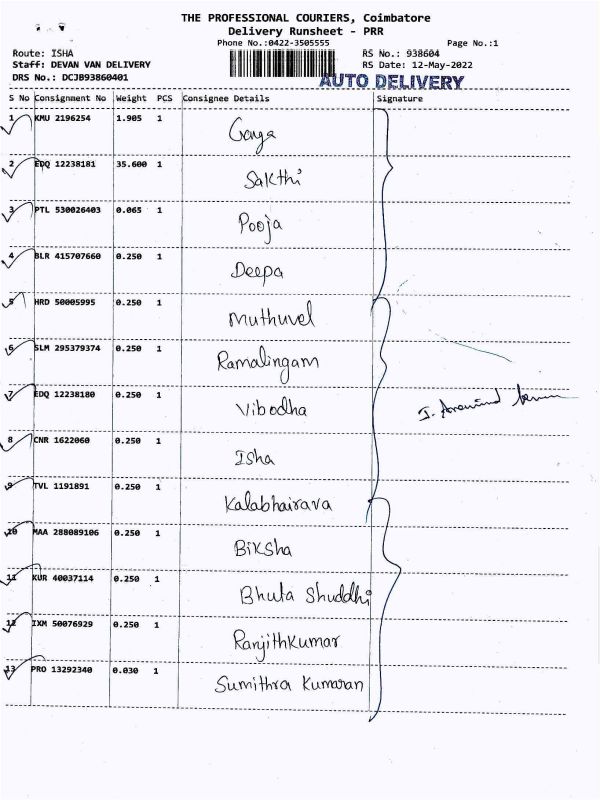 THE PROFESSIONAL COURIERS, Coimbatore
Delivery Runsheet - PRR
Phone No.:0422-3505555 Page No.:1
Route: ISHA RS No.: 938604
Staff: DEVAN VAN DELIVERY RS Date: 12-May-2022
DRS No.: DCJB93860401 AUTO DELIVERY
S No Consignment No Weight PCS Consignee Details Signature
1 KMU 2196254 1.905 1
2 EDQ 12238181 35.600 1 Sakthi
3 PTL 530026403 0.065 1 Pooja
4 BLR 415707660 0.250 1 Deepa
5 HRD 50005995 0.250 1 Muthuvel
6 SLM 295379374 0.250 1 Ramalingam
7 EDQ 12238180 0.250 1 Vibodha
J. Aravind
8 CNR 1622060 0.250 1 Isha
9 TVL 1191891 0.250 1 Kalabhairava
10 MAA 288089106 0.250 1 Biksha
11 KUR 40037114 0.250 1 Bhuta Shuddhi
12 IXM 50076929 0.250 1 Ranjithkumar
13 PRO 13292340 0.030 1 Sumithra Kumaran